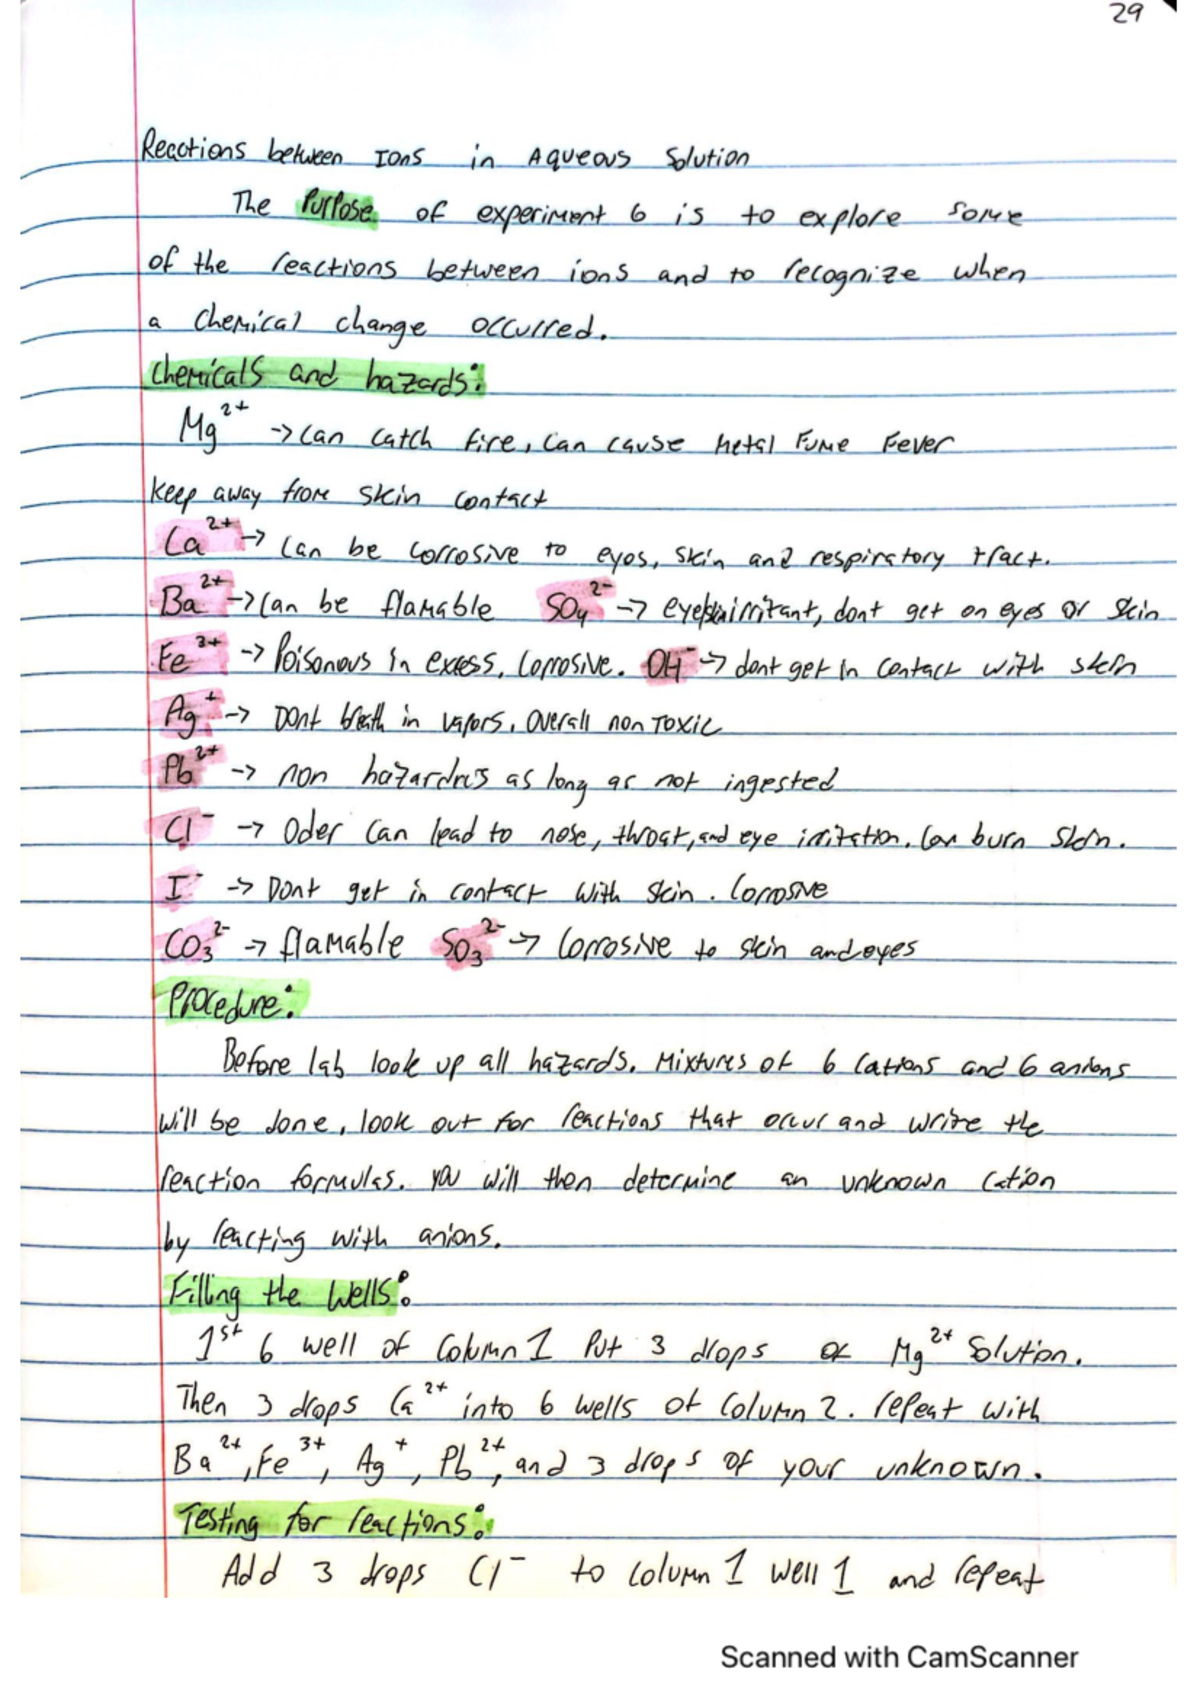 29
Reactions between Ions in Aqueous Solution
The Purpose of experiment 6 is to explore some
of the reactions between ions and to recognize when
a chemical change occurred.
Chemicals and hazards:
Mg²⁺ -> can catch fire, can cause metal Fume Fever
keep away from skin contact
Ca²⁺ -> can be corrosive to eyes, skin and respiratory tract.
Ba²⁺ -> can be flamable SO₄²⁻ -> eye irritant, dont get on eyes or skin
Fe³⁺ -> Poisonous in exess, corrosive. OH⁻ -> dont get in contact with skin
Ag⁺ -> Dont breath in vapors, overall non Toxic
Pb²⁺ -> non as long as not ingested
Cl⁻ -> Oder can lead to nose, throat, and eye irritation. Can burn skin.
I⁻ -> Dont get in contact with skin. Corrosive
CO₃²⁻ -> flamable SO₃²⁻ -> Corrosive to skin and eyes
Procedure:
Before lab look up all hazards. Mixtures of 6 cations and 6 anions
will be done, look out for reactions that occur and write the
reaction formulas. you will then determine an unknown cation
by reacting with anions.
Filling the Wells:
1st 6 well of Column 1 Put 3 drops of Mg²⁺ Solution.
Then 3 drops Ca²⁺ into 6 wells of Column 2. repeat with
Ba²⁺, Fe³⁺, Ag⁺, Pb²⁺, and 3 drops of your unknown.
Testing for reactions:
Add 3 drops Cl⁻ to column 1 well 1 and repeat
Scanned with CamScanner